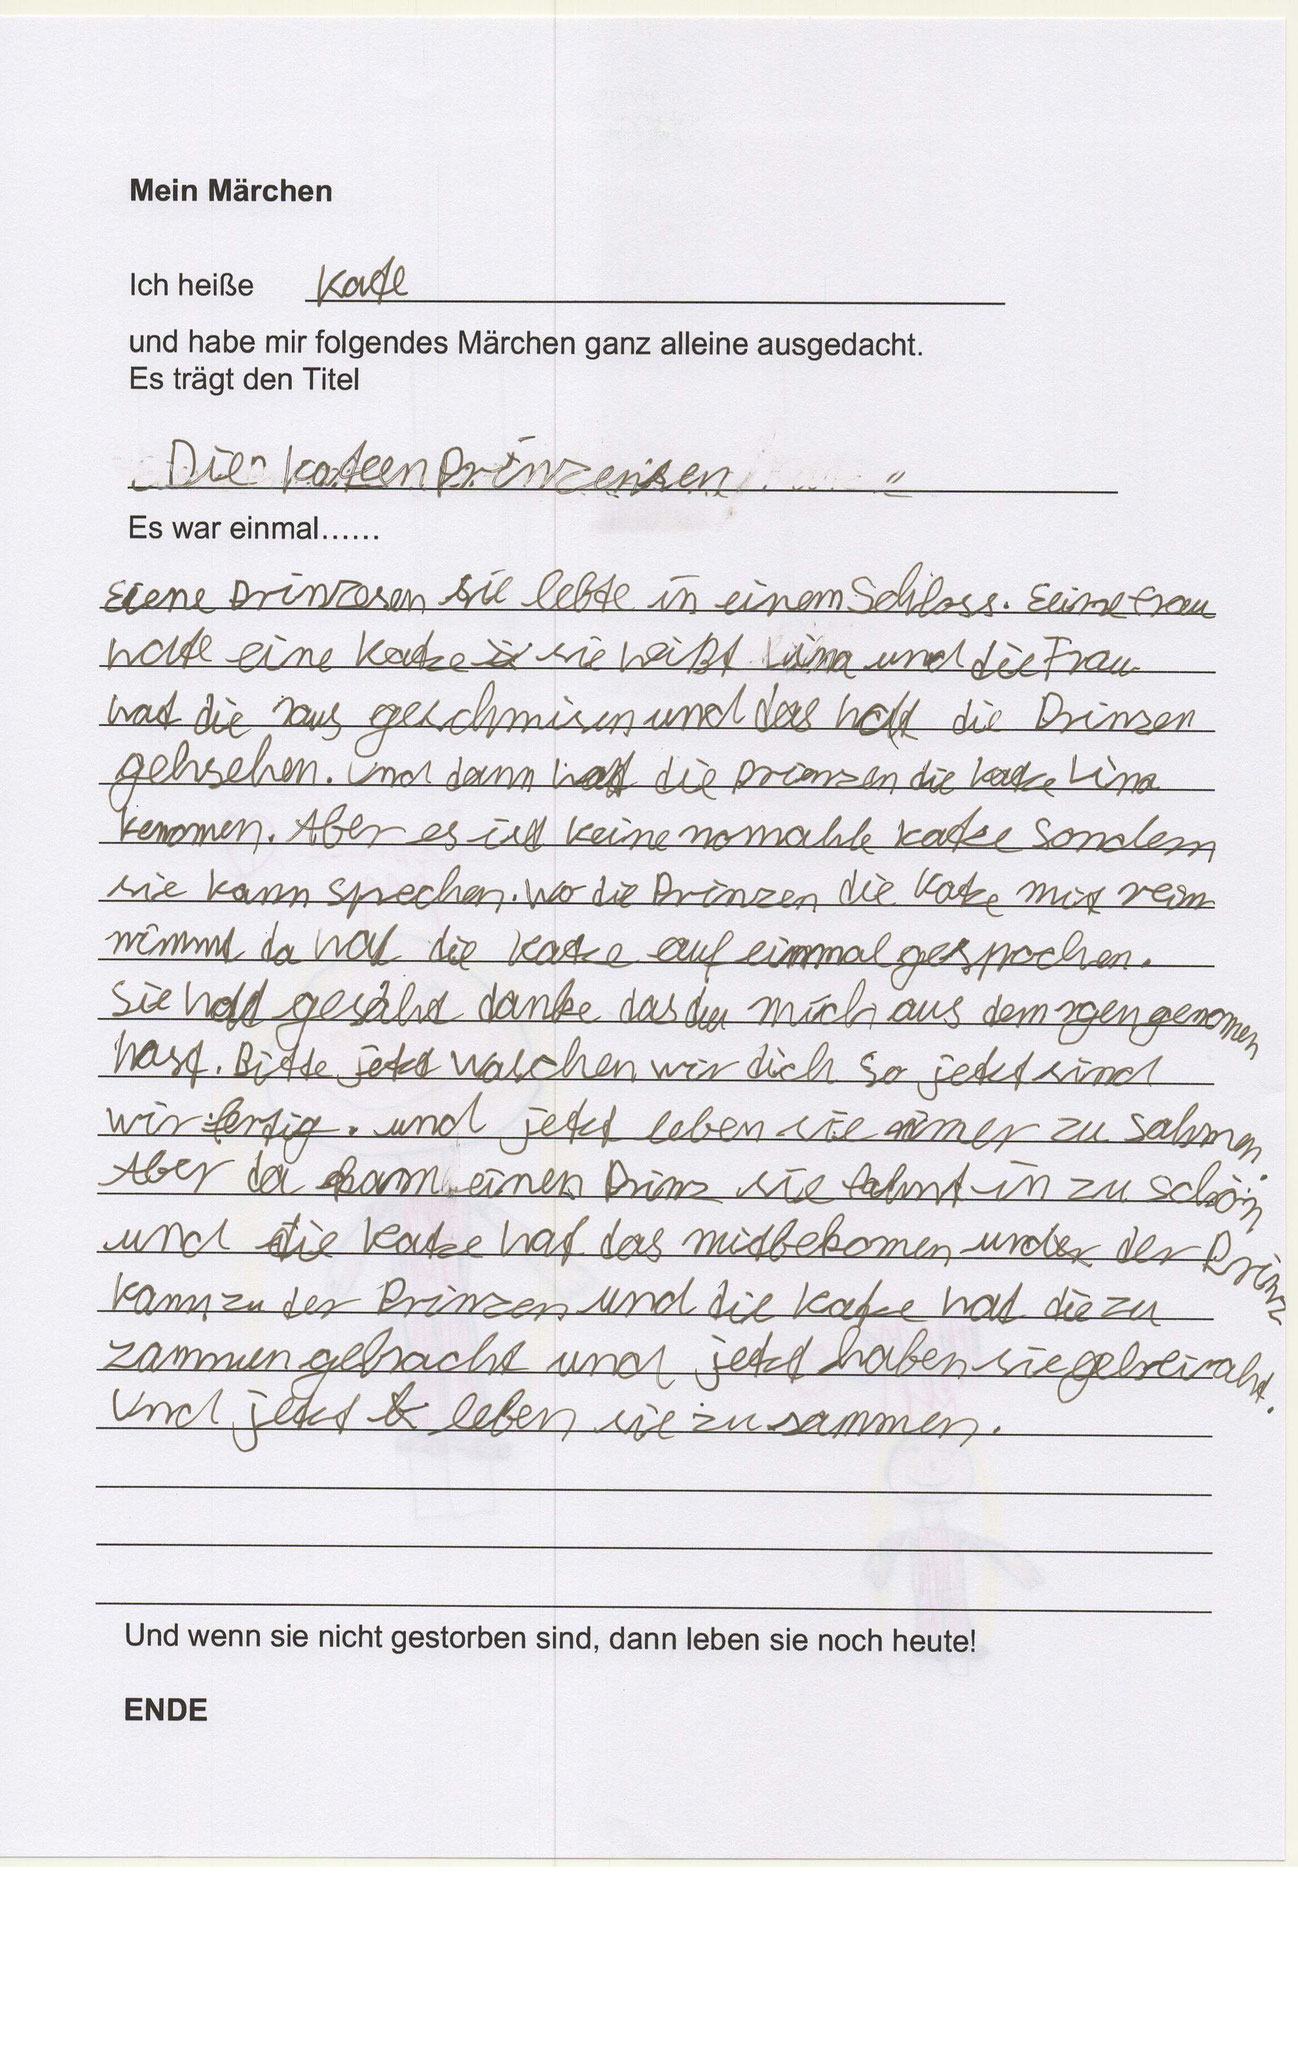 Mein Märchen
Ich heiße Kate
und habe mir folgendes Märchen ganz alleine ausgedacht.
Es trägt den Titel
„Die Kateen Prinzensen“
Es war einmal......
Eiene Prinzesen sie lebte in einem Schloss. Eeine Frau
hate eine Katze sie heißt Lina und die Frau
hat die raus geschmisen und das hatt die Prinsen
gehsehen. Und dann hatt die Prinzen die Katze Lina
kenomen. Aber es ist keine nomahle Katze Sondern
sie kann sprechen. Wo die Prinzen die Katze mit rein
nimmt da hat die Katze auf einmal gesprochen.
Sie hatt gesäht danke das du mich aus dem rgen genomen
hast. Bitte jetzt waschen wir dich so jetzt sind
wir fertig. und jetzt leben sie imer zu sahmen.
Aber da kam einen Prinz sie fahnt in zu schön
und die Katze hat das mitbekomen und der Prinz
kann zu der Prinzen und die Katze hat die zu
zammen gebracht und jetzt haben sie geheiraht.
Und jetzt leben sie zu sammen.
Und wenn sie nicht gestorben sind, dann leben sie noch heute!
ENDE